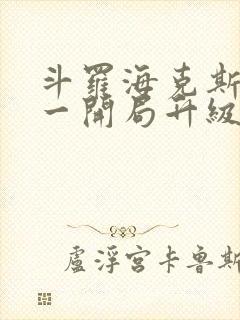 斗羅海克斯
一開局升級
盧浮宮卡魯斯